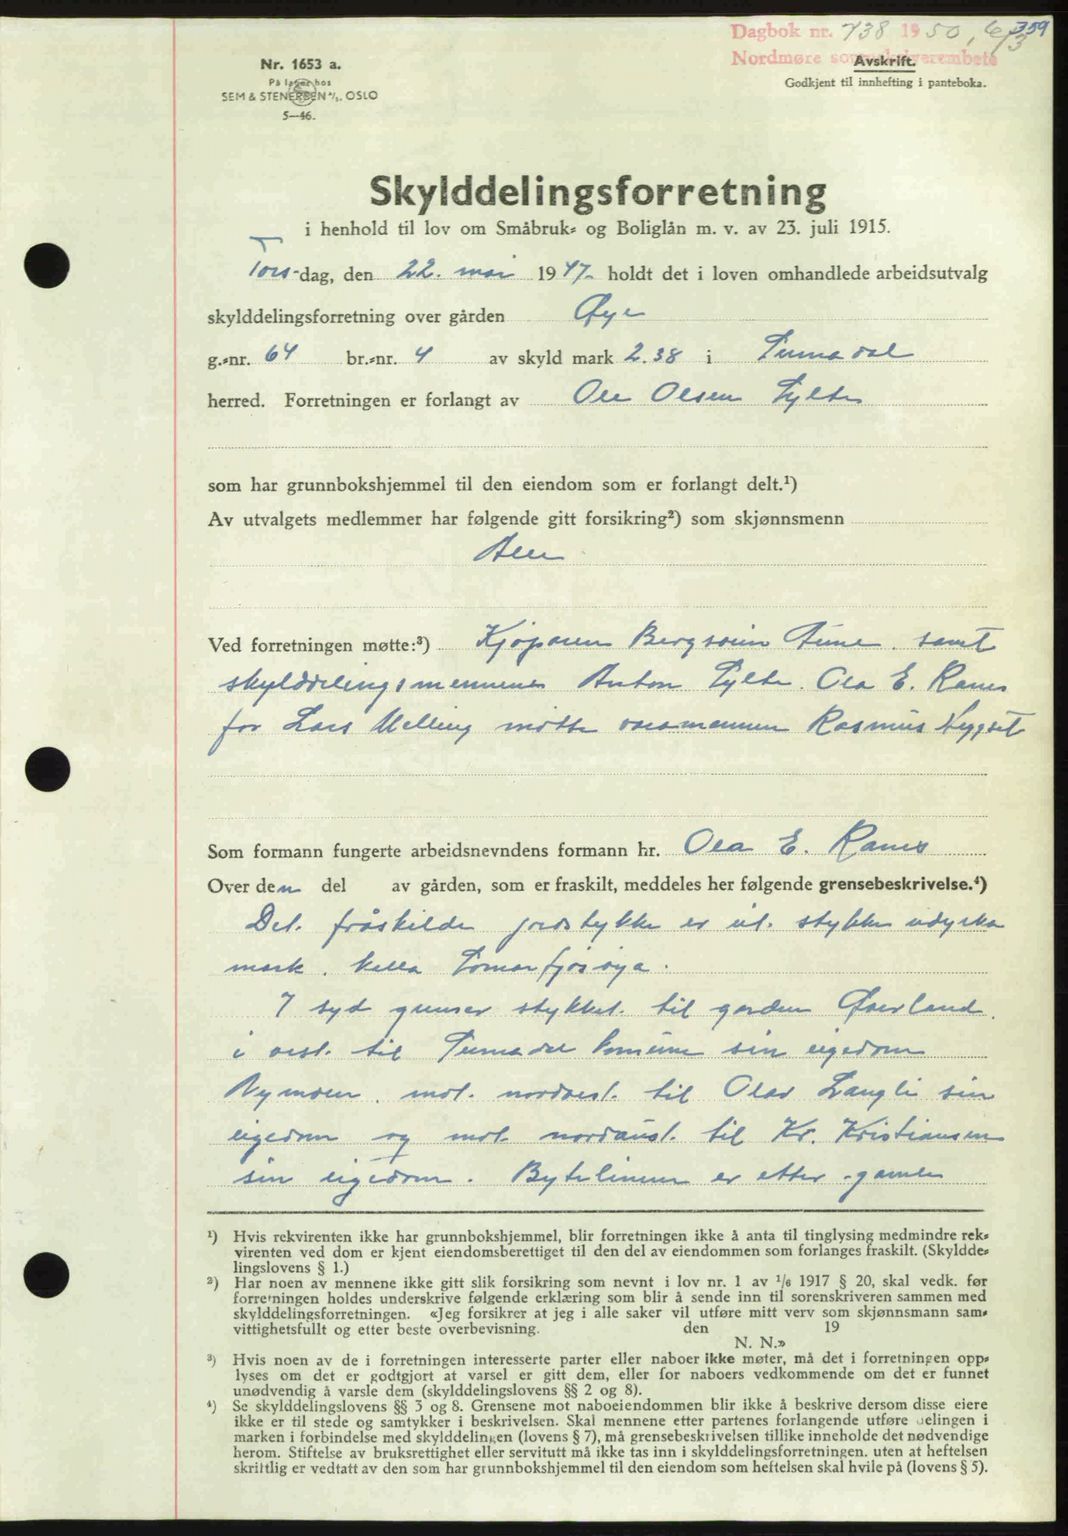 Dagbok nr. 738 1950, 6/3 359
Nordmøre sorenskriverembete
Nr. 1653 a. Avskrift.
På lager hos Godkjent til innhefting i panteboka.
SEM & STENERSEN A/S, OSLO
5—46.
Skylddelingsforretning
i henhold til lov om Småbruk- og Boliglån m. v. av 23. juli 1915.
Tors-dag, den 22. mai 1947 holdt det i loven omhandlede arbeidsutvalg
skylddelingsforretning over gården Øye
g.-nr. 64 br.-nr. 4 av skyld mark 2.38 i Surnadal
herred. Forretningen er forlangt av Ole Olsen Sylte
som har grunnbokshjemmel til den eiendom som er forlangt delt.¹)
Av utvalgets medlemmer har følgende gitt forsikring²) som skjønnsmenn
Alle
Ved forretningen møtte:³) Kjøparen Bergsvein Aune. samt
skylddelingsmennene Anton Sylte. Ola E. Ranes
for Lars Melling møtte varamannen Rasmus Nygset
Som formann fungerte arbeidsnevndens formann hr. Ola E. Ranes
Over den del av gården, som er fraskilt, meddeles her følgende grensebeskrivelse.⁴)
Det fråskilde jordstykke er eit stykke udyrka
mark. kalla
I syd grenser stykket til garden Øverland.
i vest til Surnadal komune sin eigedom
Nymoen. mot nordvest til Olav Langli sin
eigedom og mot nordaust til Kr. Kristiansen
sin eigedom. Bytelinene er etter gamle
¹) Hvis rekvirenten ikke har grunnbokshjemmel, blir forretningen ikke å anta til tinglysing medmindre rek-
virenten ved dom er kjent eiendomsberettiget til den del av eiendommen som forlanges fraskilt. (Skyldde-
lingslovens § 1.)
²) Har noen av mennene ikke gitt slik forsikring som nevnt i lov nr. 1 av 1/6 1917 § 20, skal vedk. før
forretningen holdes underskrive følgende erklæring som blir å sende inn til sorenskriveren sammen med
skylddelingsforretningen. «Jeg forsikrer at jeg i alle saker vil utføre mitt verv som skjønnsmann sam-
vittighetsfullt og etter beste overbevisning. den 19
N. N.»
³) Hvis noen av de i forretningen interesserte parter eller naboer ikke møter, må det i forretningen opp-
lyses om det er godtgjort at varsel er gitt dem, eller for naboers vedkommende om det er funnet
unødvendig å varsle dem (skylddelingslovens §§ 2 og 8).
⁴) Se skylddelingslovens §§ 3 og 8. Grensene mot naboeiendommen blir ikke å beskrive dersom disse eiere
ikke er til stede og samtykker i beskrivelsen. Skal mennene etter partenes forlangende utføre delingen i
marken i forbindelse med skylddelingen (lovens § 7), må grensebeskrivelsen tillike inneholde det nødvendige
herom. Stiftelse av bruksrettighet eller servitutt må ikke tas inn i skylddelingsforretningen. uten at heftelsen
skriftlig er vedtatt av den som har grunnbokshjemmel til den eiendom som heftelsen skal hvile på (lovens § 5).